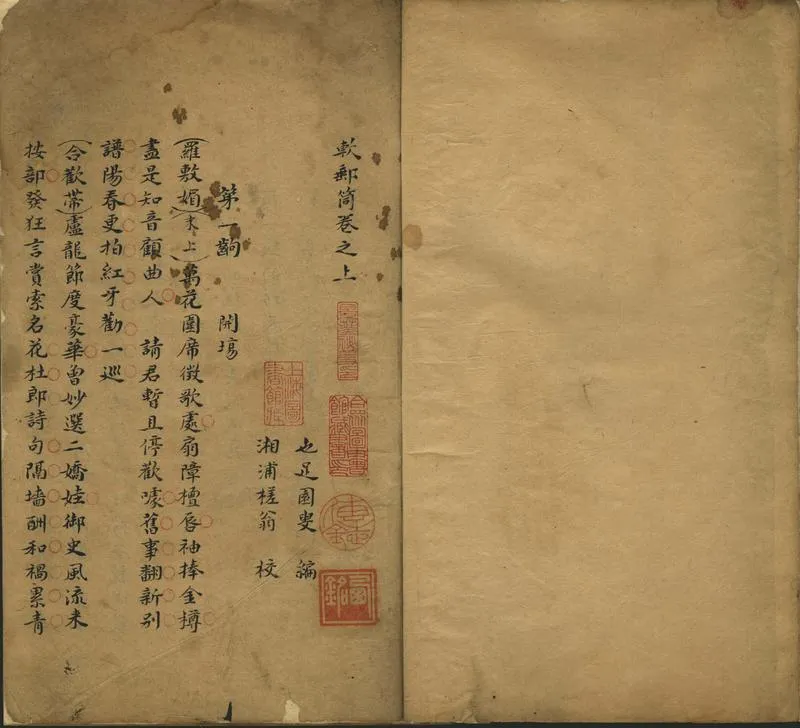 軟郵筒卷之上
也足園叟 編
湘浦槎翁 校
第一齣 開場
(羅敷媚)(末上)萬花圍席徵歌處扇障檀唇袖捧金樽
盡是知音顧曲人 請君暫且停歡噱舊事翻新別
譜陽春更拍紅牙勸一巡
(合歡帶)盧龍節度豪華曾妙選二嬌娃御史風流來
按部發狂言賞索名花杜郎詩句隔墻酬和禍累青